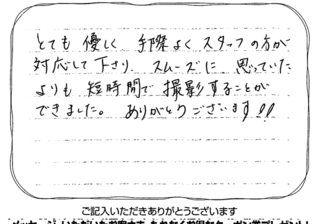 とても 優しく 手際よく スタッフの方が
対応して下さり、スムーズに 思っていた
よりも 短時間で 撮影することが
できました。 ありがとうございます!!
ご記入いただきありがとうございます